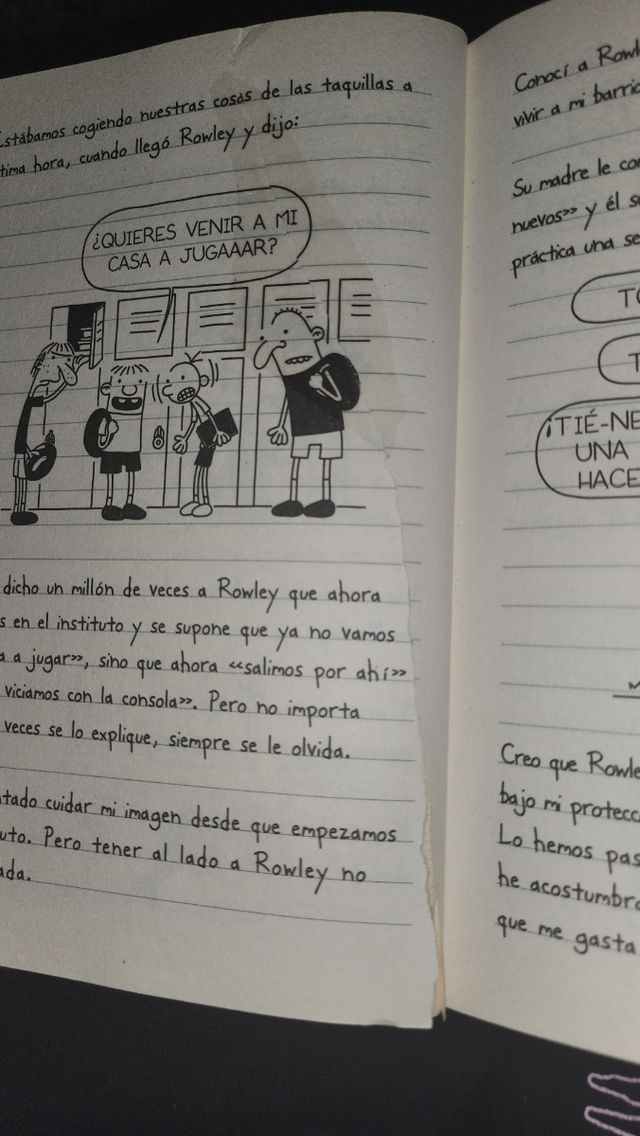 Estábamos cogiendo nuestras cosas de las taquillas a
tima hora, cuando llegó Rowley y dijo:
¿QUIERES VENIR A MI
CASA A JUGAAAR?
dicho un millón de veces a Rowley que ahora
s en el instituto y se supone que ya no vamos
a a jugar», sino que ahora «salimos por ahí»
viciamos con la consola». Pero no importa
veces se lo explique, siempre se le olvida.
tado cuidar mi imagen desde que empezamos
uto. Pero tener al lado a Rowley no
ada.
Conocí a Rowl
vivir a mi barrio
Su madre le co
nuevos» y él s
práctica una se
TO
T
¡TIÉ-NE
UNA
HACE
Creo que Rowle
bajo mi protecc
Lo hemos pas
he acostumbra
que me gasta